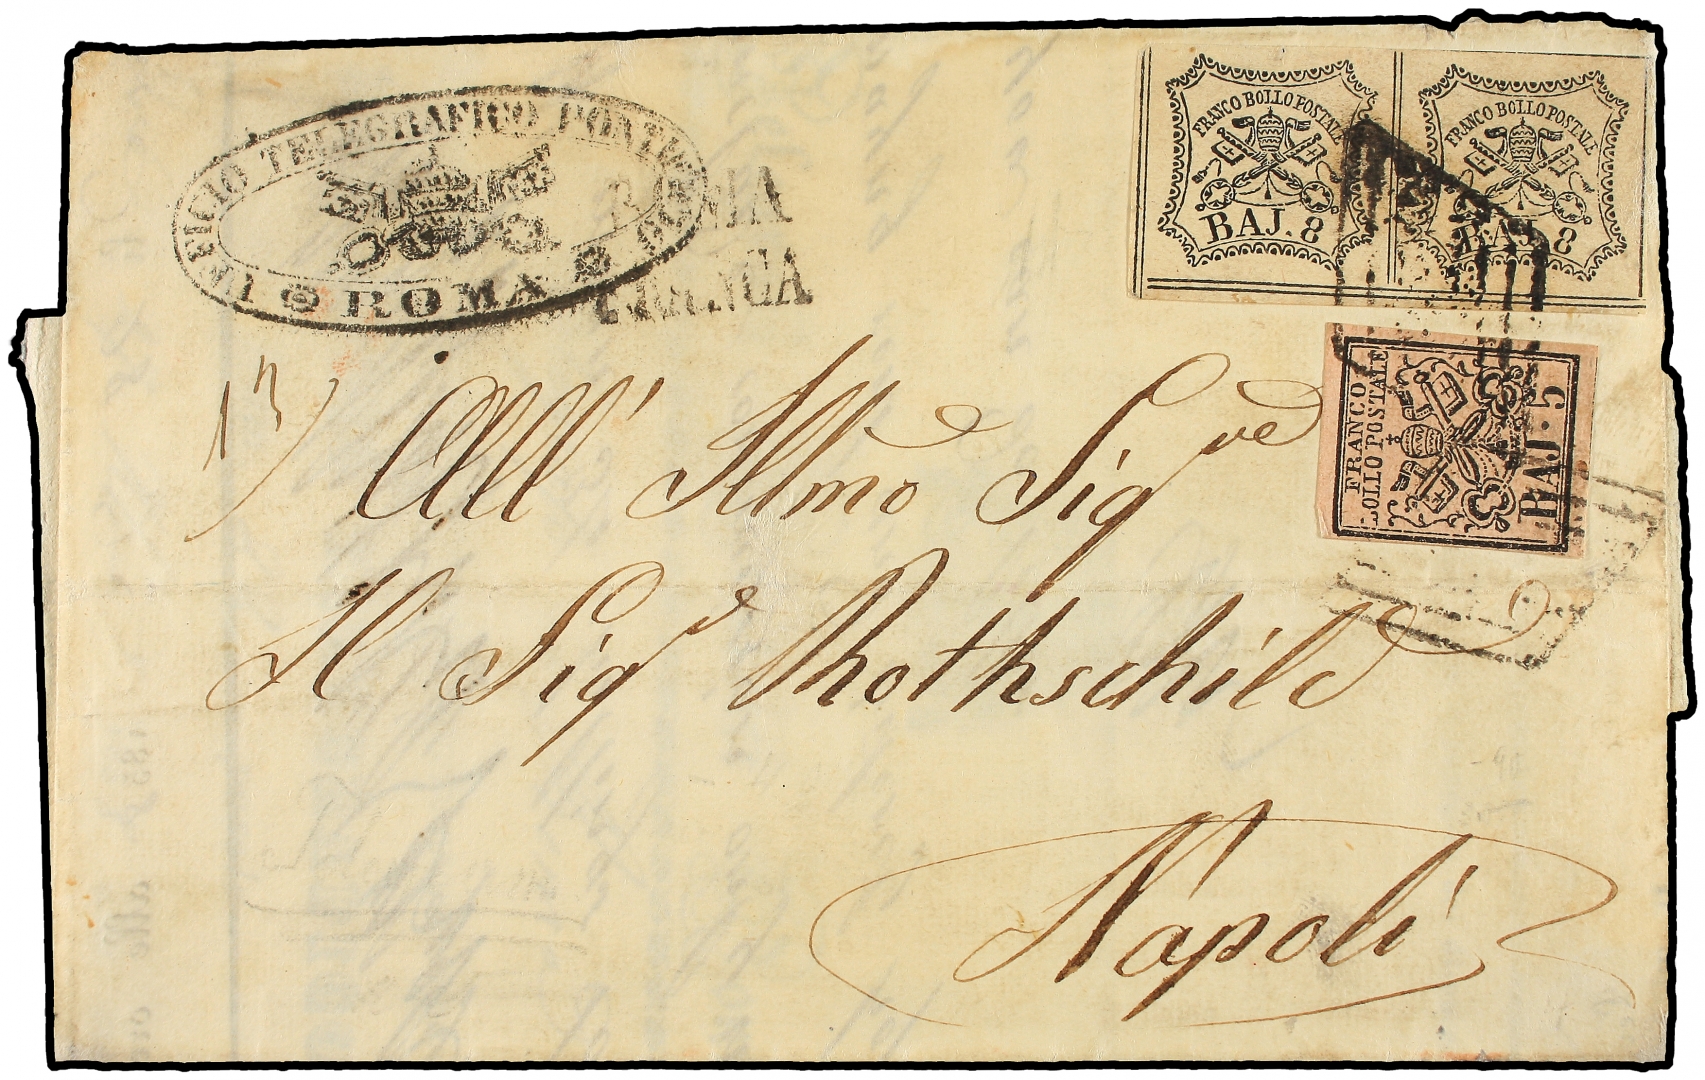 UFFICIO TELEGRAFICO PONTIFICIO
ROMA
ROMA
FRANCA
FRANCO BOLLO POSTALE
BAJ. 8
FRANCO BOLLO POSTALE
BAJ. 8
FRANCO
BOLLO POSTALE
BAJ. 5
13)
All' Illmo Sigre
Il Sigr Rothschild
Napoli